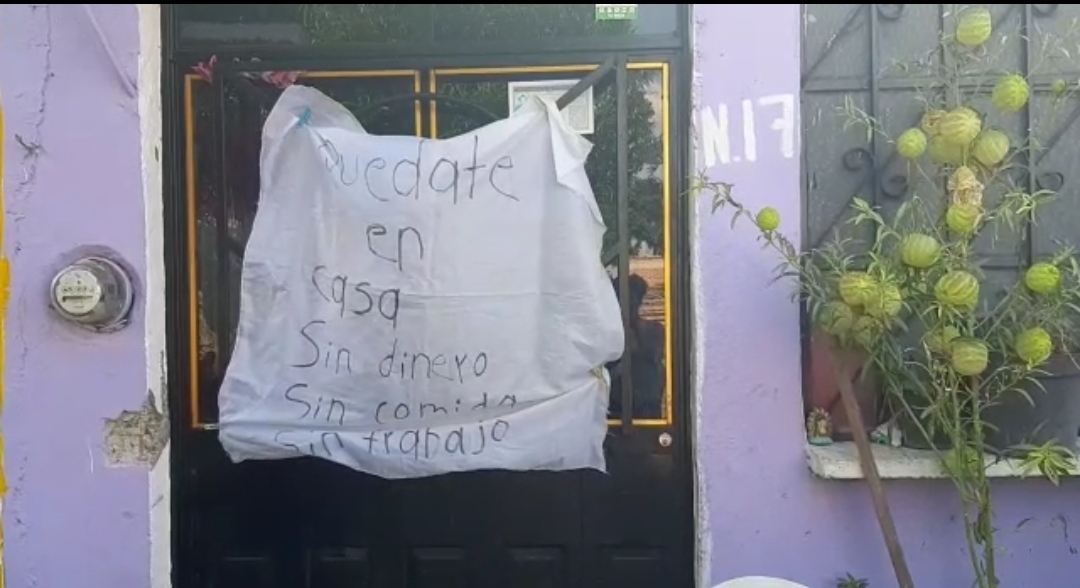 Quedate
en
casa
Sin dinero
Sin comida
Sin trabajo
FIN